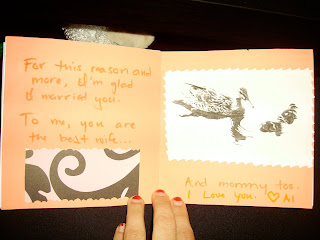 For this reason and
more, I'm glad
I married you.
To me, you are
the best wife...
And mommy too.
I Love you. ♡ Al